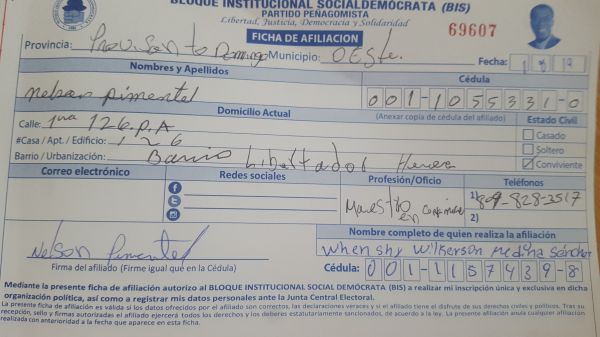 BLOQUE INSTITUCIONAL SOCIALDEMÓCRATA (BIS)
PARTIDO PEÑAGOMISTA
Libertad, Justicia, Democracia y Solidaridad
69607
FICHA DE AFILIACION
Provincia: Santo Domingo Municipio: Oeste. Fecha: 1 8 19
Nombres y Apellidos
Cédula
nelson pimentel
001-1055331-0
Domicilio Actual
(Anexar copia de cédula del afiliado)
Estado Civil
Calle: 1ra 126. P. A
Casado
#Casa / Apt. / Edificio: 126
Soltero
Barrio / Urbanización: Barrio Libeltador Herera
Conviviente
Correo electrónico
Redes sociales
Profesión/Oficio
Teléfonos
Maestro en
1) 809-828-3517
2)
Nelson Pimentel
Nombre completo de quien realiza la afiliación
whenshy wilkerson medina sánchez
Firma del afiliado (Firme igual que en la Cédula)
Cédula: 001-1157439-8
Mediante la presente ficha de afiliación autorizo al BLOQUE INSTITUCIONAL SOCIAL DEMÓCRATA (BIS) a realizar mi inscripción única y exclusiva en dicha
organización política, así como a registrar mis datos personales ante la Junta Central Electoral.
La presente ficha de afiliación es válida si los datos ofrecidos por el afiliado son correctos, las declaraciones veraces y si el afiliado tiene el disfrute de sus derechos civiles y políticos. Tras su
recepción, sello y firmas autorizadas el afiliado ejercerá todos los derechos y los deberes estatutariamente sancionados, de acuerdo a la ley. La presente afiliación anula cualquier afiliación
realizada con anterioridad a la fecha que aparece en esta ficha.